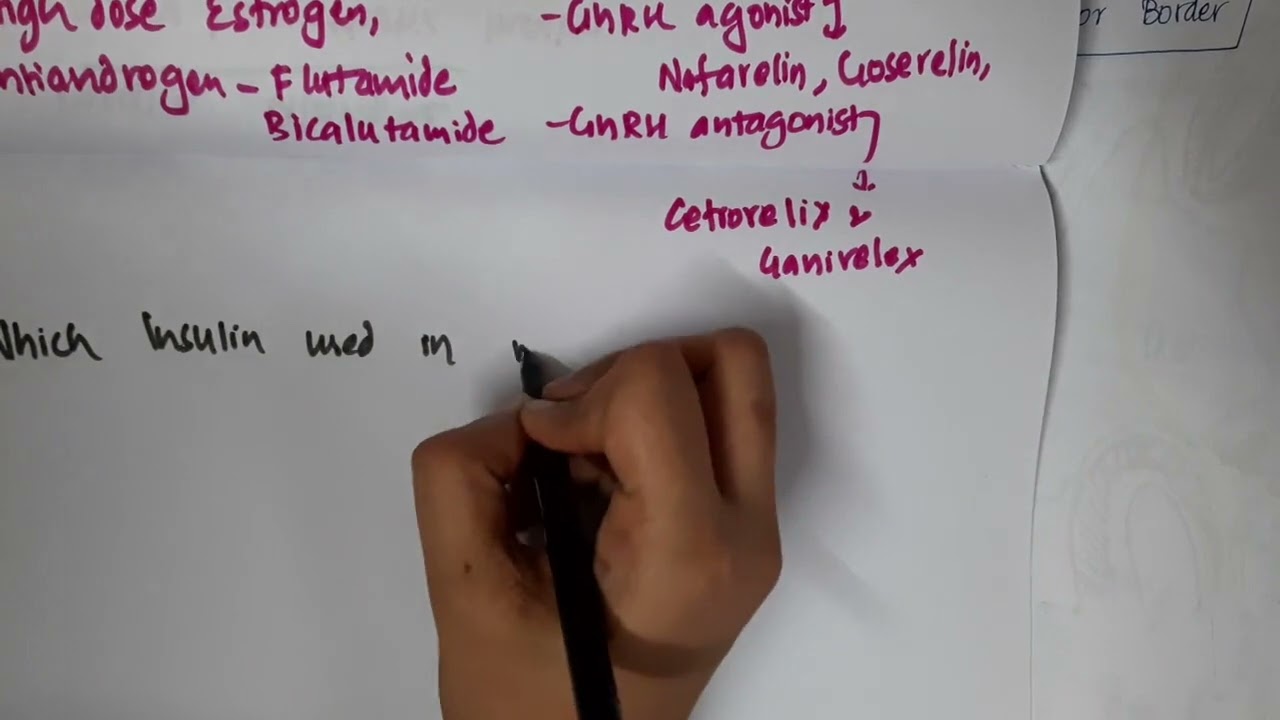 ngh dose Estrogen, -GnRH agonist]
ntiandrogen - Flutamide Nafarelin, Goserelin,
Bicalutamide -GnRH antagonist]
Cetrorelix &
Ganirelex
Which Insulin used in
or Border